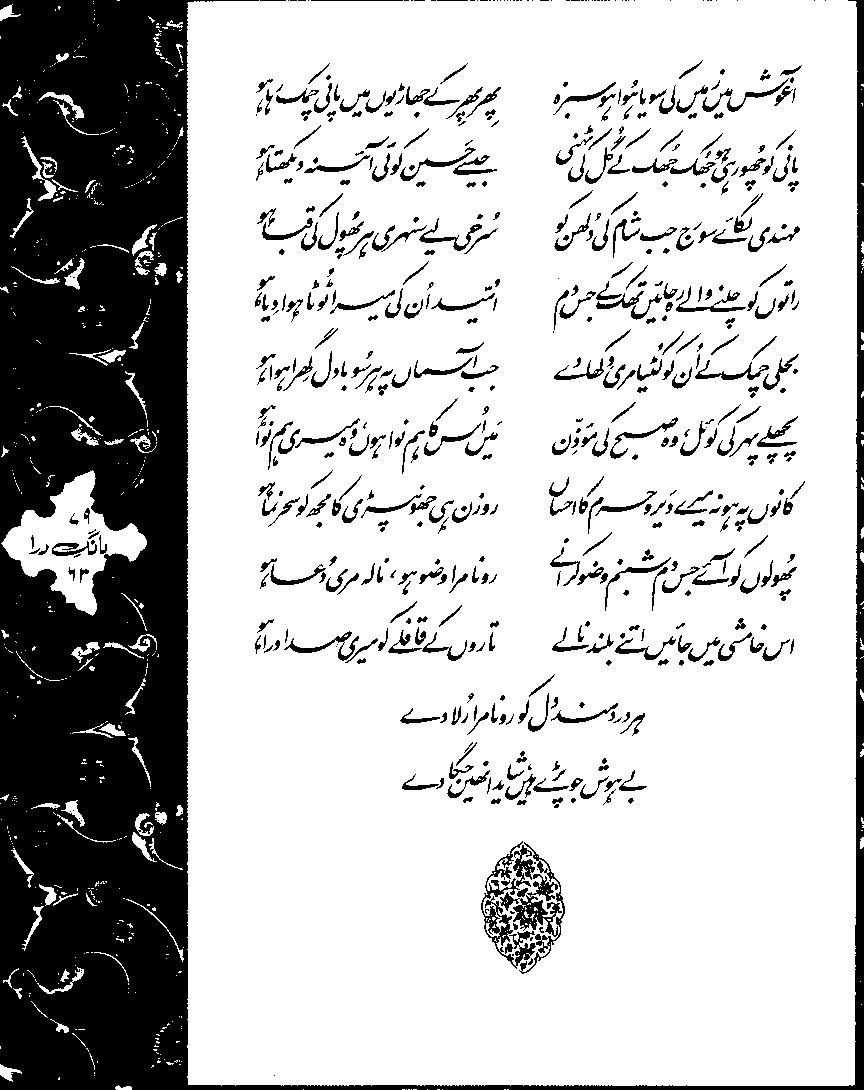 آغوش میں زمیں کی سویا ہُوا ہو سبزہ پھِر پھِر کے جھاڑیوں میں پانی چمک رہا ہو
پانی کو چھُو رہی ہو جھُک جھُک کے گُل کی ٹہنی جیسے حَسین کوئی آئینہ دیکھتا ہو
مہندی لگائے سورج جب شام کی دُلھن کو سُرخی لیے سنہری ہر پھُول کی قبا ہو
راتوں کو چلنے والے رہ جائیں تھک کے جس دم اُمّید اُن کی میرا ٹُوٹا ہوا دِیا ہو
بجلی چمک کے اُن کو کُٹیا مری دکھا دے جب آسماں پہ ہر سُو بادل گھِرا ہوا ہو
پچھلے پہر کی کوئل، وہ صبح کی مؤذِّن مَیں اُس کا ہم نوا ہوں، وہ میری ہم نوا ہو
کانوں پہ ہو نہ میرے دَیر و حرم کا احساں روزن ہی جھونپڑی کا مجھ کو سحر نما ہو
پھُولوں کو آئے جس دم شبنم وضو کرانے رونا مرا وضو ہو، نالہ مری دُعا ہو
اس خامشی میں جائیں اتنے بلند نالے تاروں کے قافلے کو میری صدا درا ہو
ہر دردمند دل کو رونا مرا رُلا دے
بے ہوش جو پڑے ہیں شاید انھیں جگا دے
۷۹
بانگِ درا
۶۳